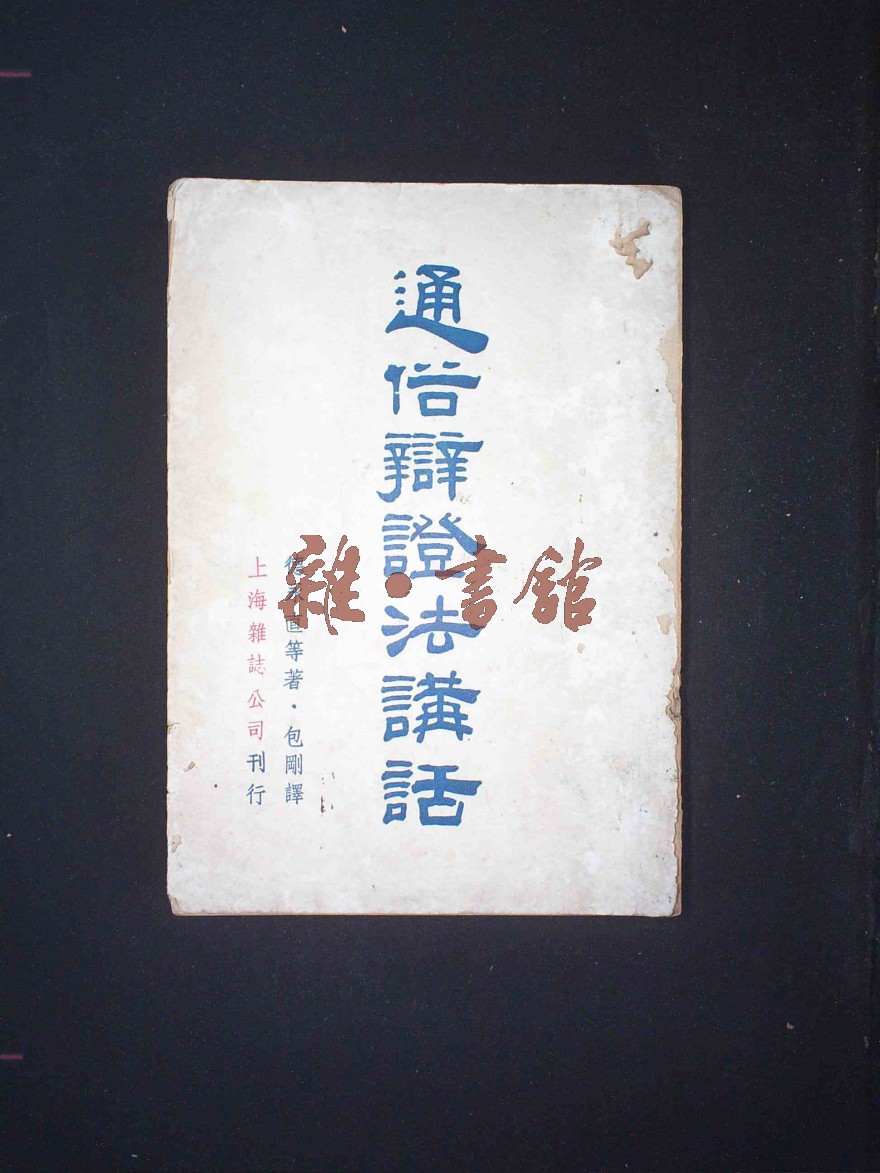 通俗辯證法講話
德永直等著・包剛譯
上海雜誌公司刊行
雜・書館